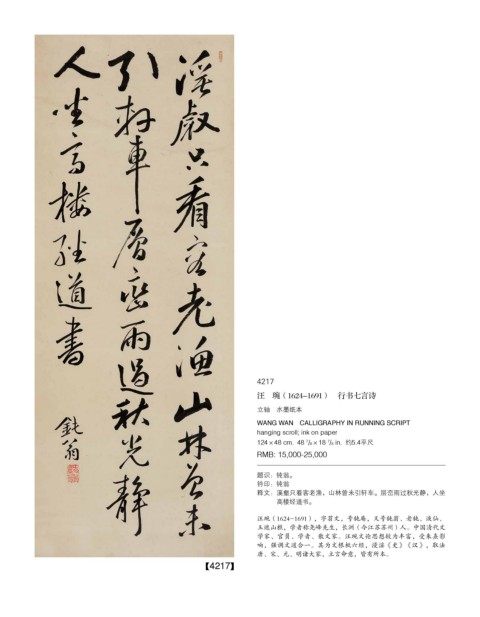 溪 只看客老漁山林曾未
引軒車層巒雨過秋光靜
人坐高樓經道書
鈍翁
【4217】
4217
汪 琬（1624-1691） 行书七言诗
立轴 水墨纸本
WANG WAN CALLIGRAPHY IN RUNNING SCRIPT
hanging scroll; ink on paper
124×48 cm. 约5.4平尺
RMB: 15,000-25,000
题识：钝翁。
钤印：钝翁
释文：溪 只看客老渔，山林曾未引轩车。层峦雨过秋光静，人坐
高楼经道书。
汪琬（1624-1691），字苕文，号钝庵，又号钝翁、老钝、液仙、
玉遮山樵，学者称尧峰先生，长洲（今江苏苏州）人。中国清代文
学家、官员、学者、散文家。汪琬文论思想较为丰富，受朱熹影
响，强调文道合一。其为文根柢六经，浸淫《史》《汉》，取法
唐、宋、元、明诸大家，立言命意，皆有所本。